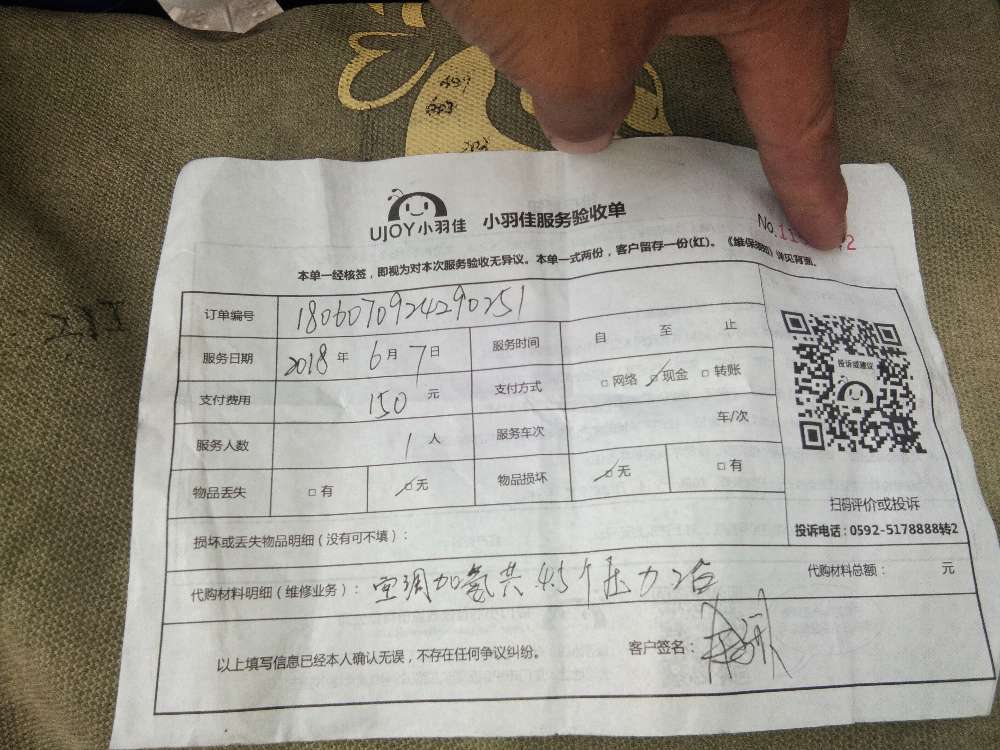 UJOY小羽佳 小羽佳服务验收单
No.
本单一经核签，即视为对本次服务验收无异议。本单一式两份，客户留存一份(红)。《维保须知》详见背面。
订单编号 1806070924290251
服务日期 2018年 6月 7日 服务时间 自 至 止
支付费用 150 元 支付方式 □网络 □现金 □转账
服务人数 1 人 服务车次 车/次
物品丢失 □有 □无 物品损坏 □无 □有
投诉或建议
扫码评价或投诉
投诉电话：0592-5178888转2
损坏或丢失物品明细（没有可不填）：
代购材料明细（维修业务）： 空调加氢共45个压力2台 代购材料总额： 元
以上填写信息已经本人确认无误，不存在任何争议纠纷。 客户签名：